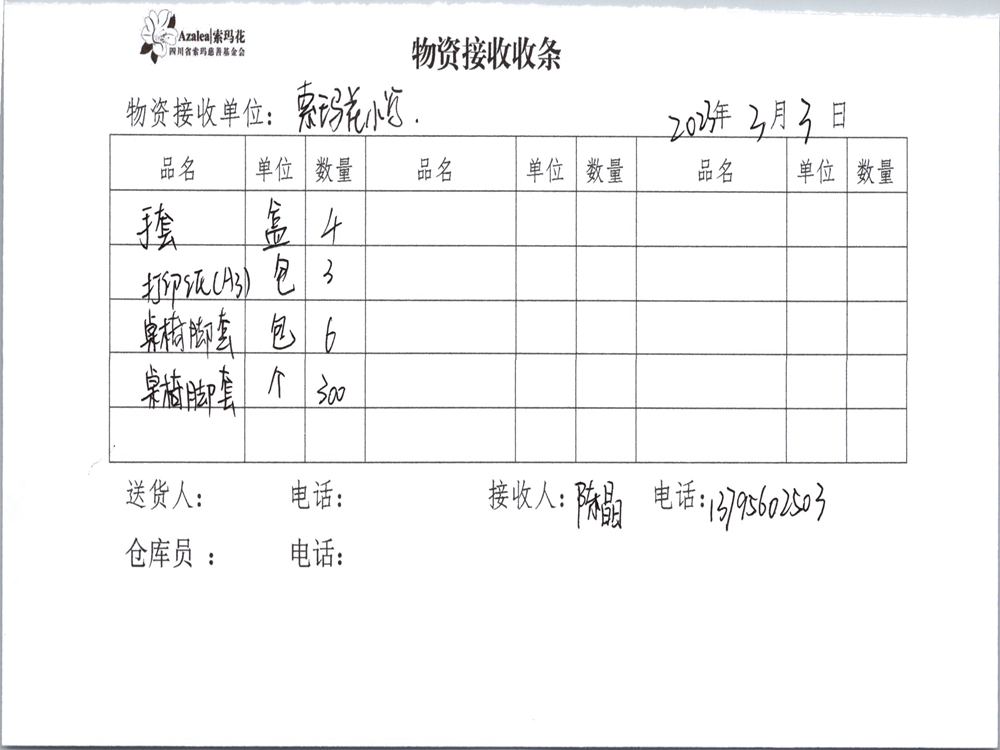 Azalea|索玛花
四川省索玛慈善基金会
物资接收收条
物资接收单位：索玛花小学.
2023年 3月 3日
品名 单位 数量 品名 单位 数量 品名 单位 数量
手套 盒 4
打印纸(A3) 包 3
桌椅脚套 包 6
桌椅脚套 个 300
送货人： 电话： 接收人：陈晶 电话：13795602503
仓库员： 电话：